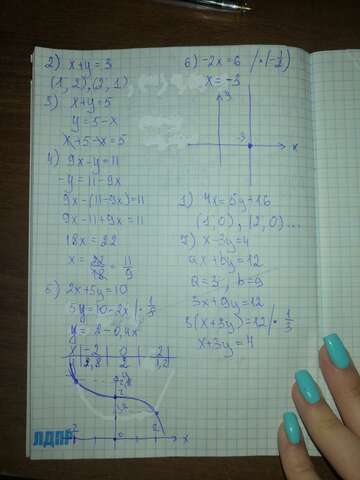 2) x+y=3
(1, 2), (2, 1)
3) x+y=5
y=5-x
x+5-x=5
4) 9x-y=11
-y=11-9x
9x-(11-9x)=11
9x-11+9x=11
18x=22
x=22/18=11/9
5) 2x+5y=10
5y=10-2x |·1/5
y=2-0,4x
x | -2 | 0 | 2
y | 2,8 | 2 | 1,2
y
2,8
2
1,2
-2 0 2 x
ЛДПР
6) -2x=6 /·(-1/2)
x=-3
y
-3 x
1) 4x=5y+16
(1, 0), (2, 0)...
7) x-3y=4
ax+by=12
a=3, b=9
3x+9y=12
3(x+3y)=12 |·1/3
x+3y=4